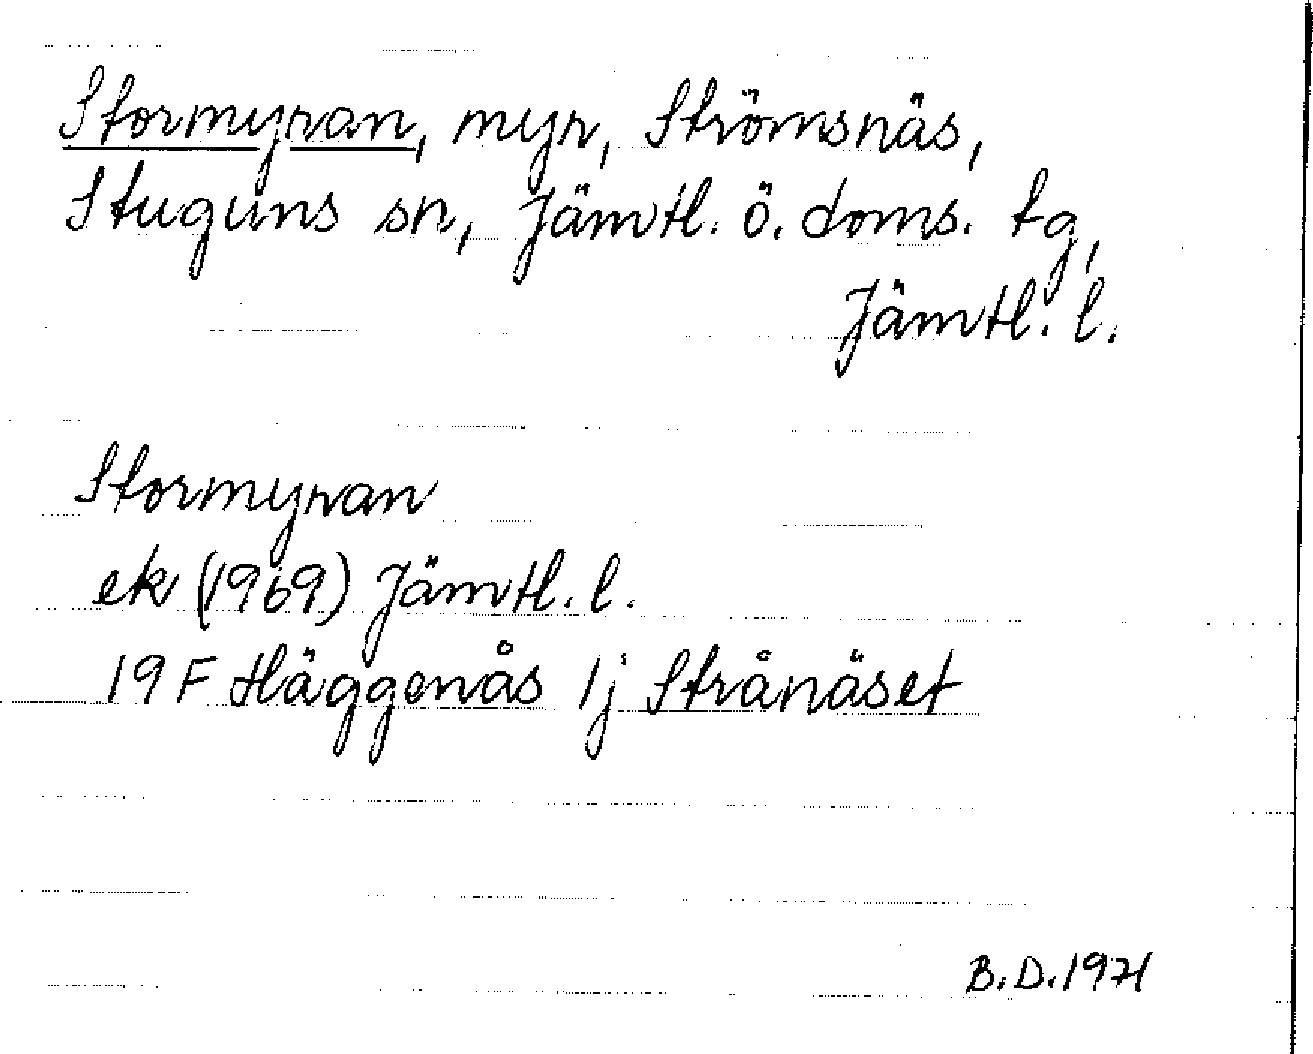 Stormyran, myr, Strömsnäs,
Stuguns sn, Jämtl. ö. doms. tg,
Jämtl. l.
Stormyran
ek (1969) Jämtl. l.
19 F Häggenås 1j Strånäset
B.D. 1971